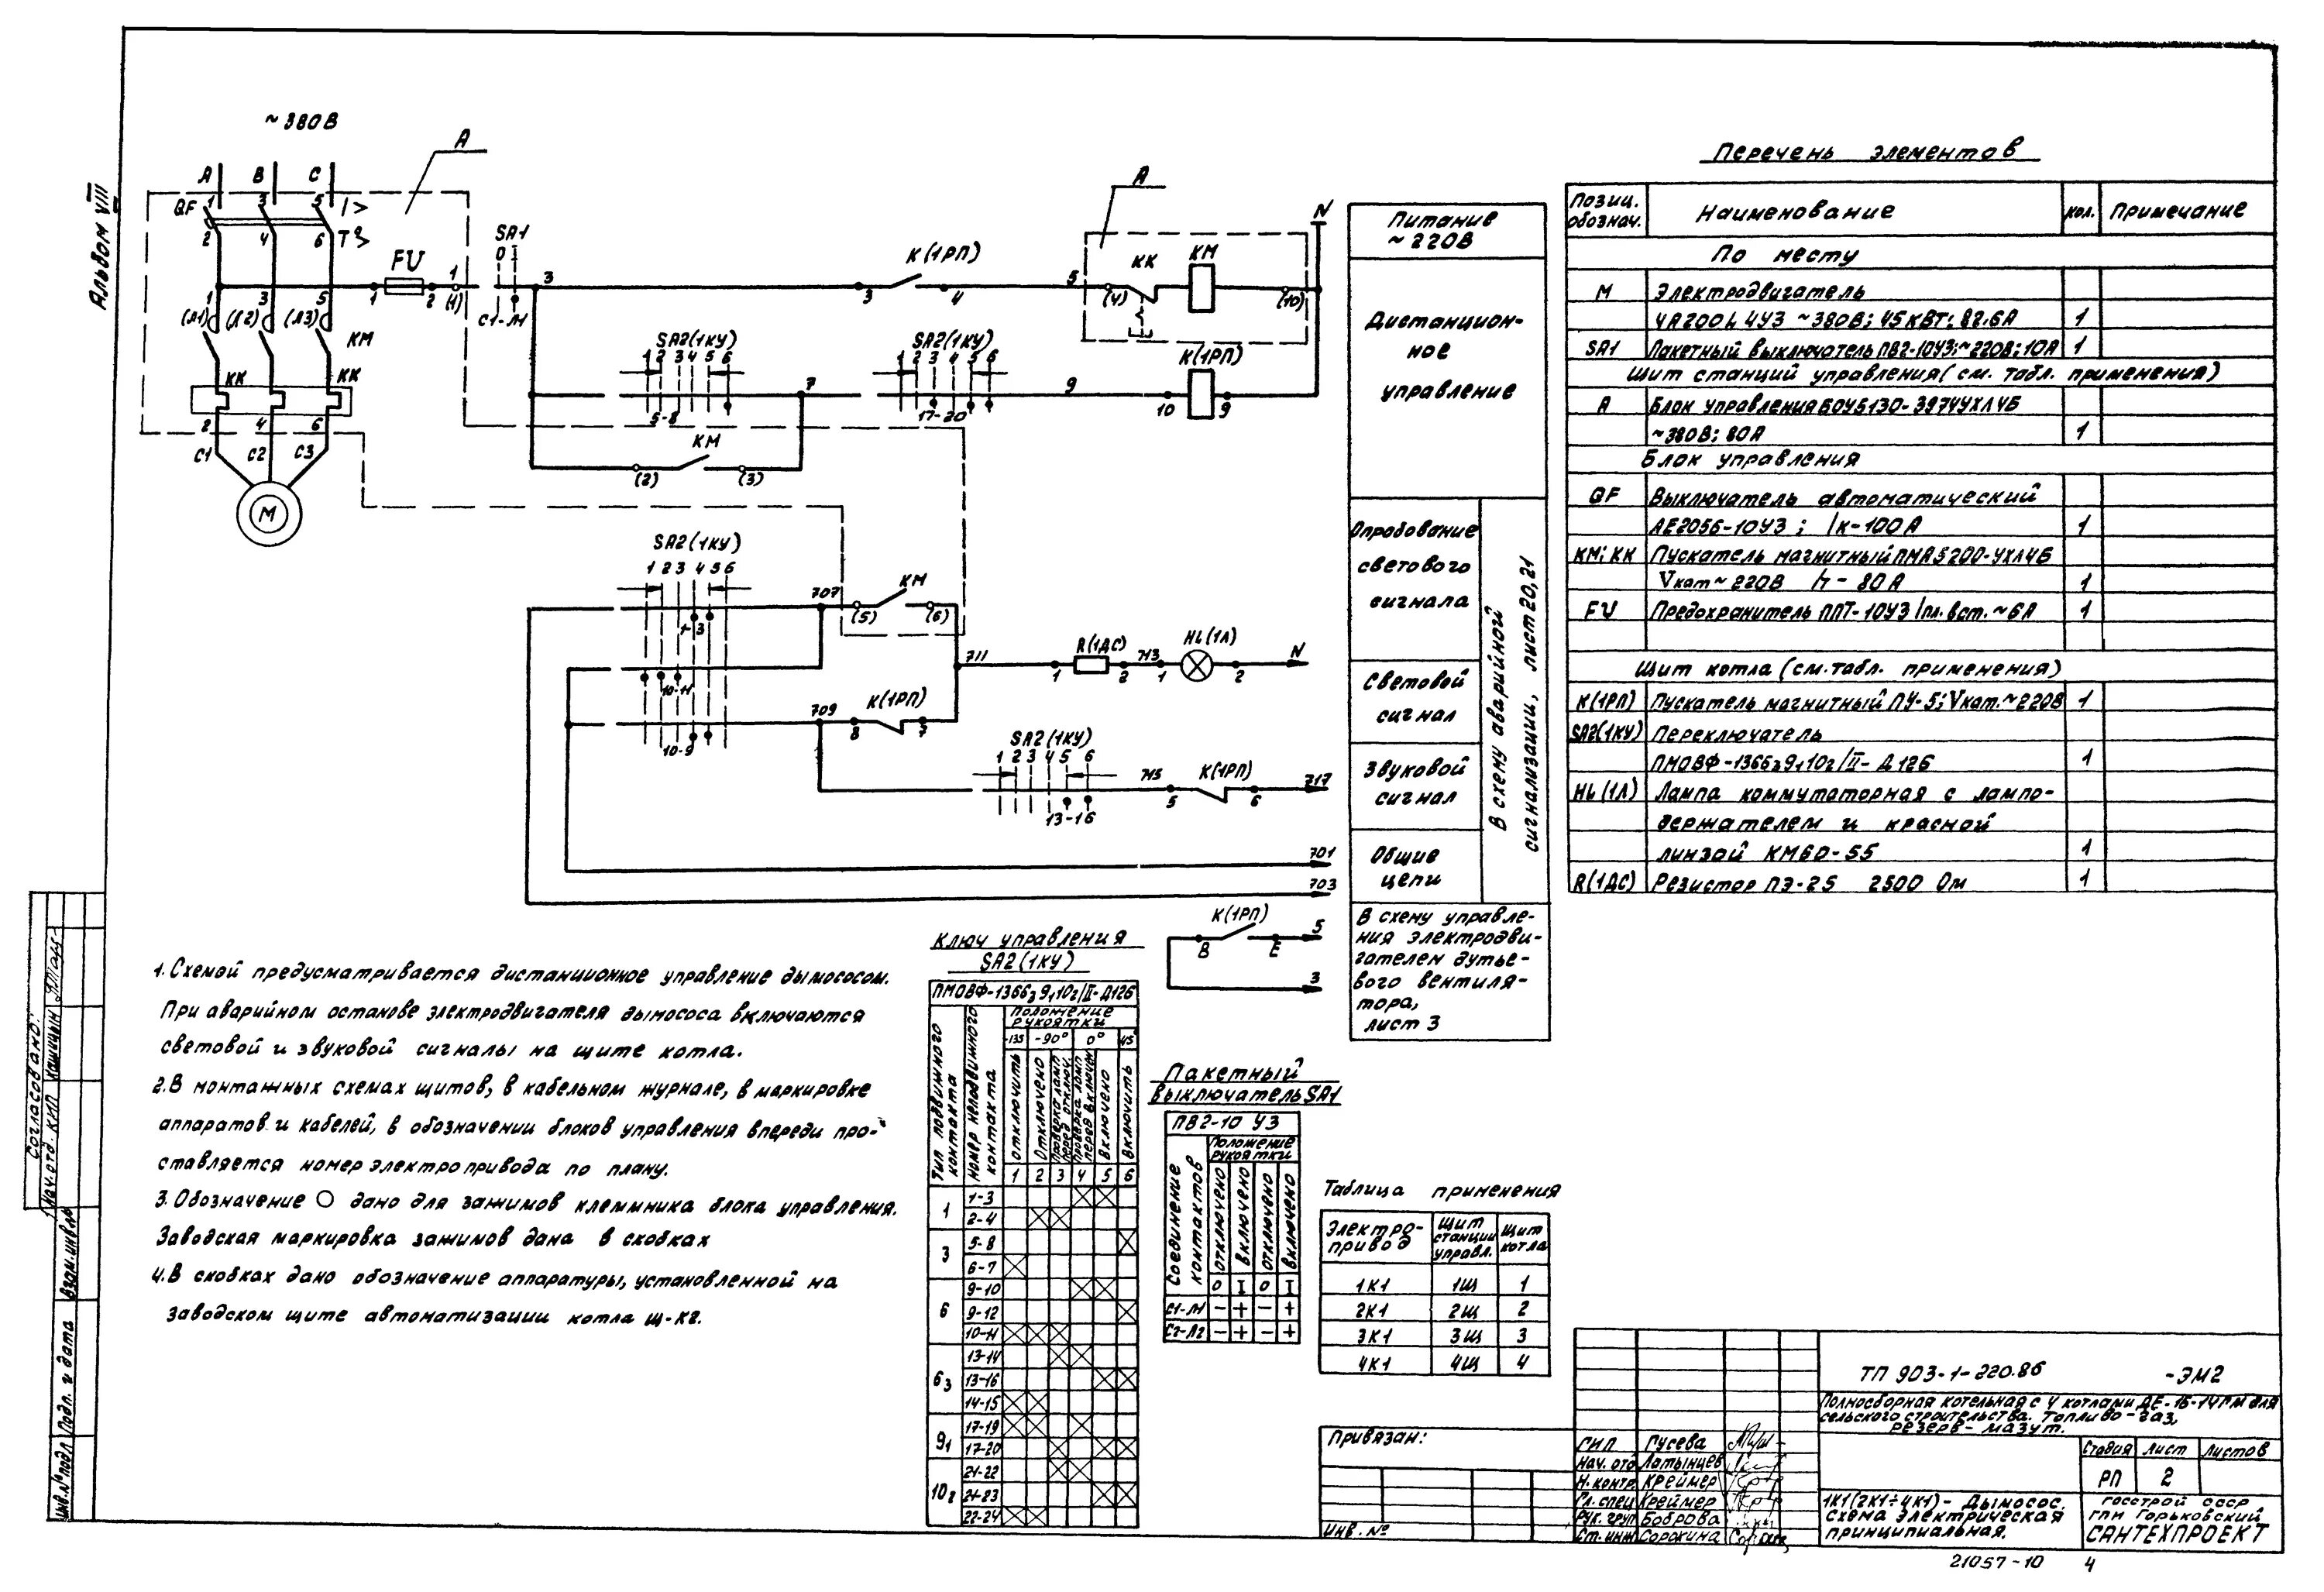 Альбом VIII
~380В
А
А В С
QF 1 3 5 I>
2 4 6 T
FU
1 2 1 (1)
SA1
0 I
С1-Л1
3
К(1РП)
3 4
5
А
КК КМ
(4) (10)
N
1 3 5
(Л1) (Л2) (Л3)
КМ
КК КК
2 4 6
С1 С2 С3
М
SA2(1КУ)
1 2 3 4 5 6
5-8
7
SA2(1КУ)
1 2 3 4 5 6
17-20
9
К(1РП)
10 9
КМ
(2) (3)
SA2(1КУ)
1 2 3 4 5 6
1-3
707
КМ
(5) (6)
10-11
711
R(1ДС)
1 2
713
HL(1Л)
1 2
N
10-9
709
К(1РП)
8 7
SA2(1КУ)
1 2 3 4 5 6
13-16
715
К(1РП)
5 6
717
701
703
К(1РП)
В Е
5
3
Питание
~220В
Дистанцион-
ное
управление
Опробование
светового
сигнала
Световой
сигнал
Звуковой
сигнал
Общие
цепи
В схему аварийной
сигнализации, лист 20,21
В схему управле-
ния электродви-
гателем дутье-
вого вентиля-
тора,
лист 3
Перечень элементов
Позиц. обознач. Наименование кол. Примечание
По месту
М Электродвигатель
4А200L4У3 ~380В; 45кВт; 82.6А 1
SA1 Пакетный выключатель ПВ2-10У3; ~220В; 10А 1
Щит станций управления (см. табл. применения)
А Блок управления БОУ5130-3974УХЛ4Б
~380В; 80А 1
Блок управления
QF Выключатель автоматический
АЕ2056-10У3; Iк-100А 1
КМ; КК Пускатель магнитный ПМА5200-УХЛ4Б
Vкат~220В Iт-80А 1
FU Предохранитель ППТ-10У3 Iпл.вст.~6А 1
Щит котла (см. табл. применения)
К(1РП) Пускатель магнитный ПУ-5; Vкат.~220В 1
SA2(1КУ) Переключатель
ПМОВФ-1366₃9₁10₂/II-Д126 1
HL(1Л) Лампа коммутаторная с лампо-
держателем и красной
линзой КМ60-55 1
R(1ДС) Резистор ПЭ-25 2500 Ом 1
1. Схемой предусматривается дистанционное управление дымососом.
При аварийном останове электродвигателя дымососа включаются
световой и звуковой сигналы на щите котла.
2. В монтажных схемах щитов, в кабельном журнале, в маркировке
аппаратов и кабелей, в обозначении блоков управления впереди про-
ставляется номер электропривода по плану.
3. Обозначение О дано для зажимов клеммника блока управления.
Заводская маркировка зажимов дана в скобках
4. В скобках дано обозначение аппаратуры, установленной на
заводском щите автоматизации котла Щ-К2.
Ключ управления
SA2(1КУ)
ПМОВФ-1366₃9₁10₂/II-Д126
Тип подвижного контакта
Номер неподвижного контакта
Положение рукоятки
-135 -90° 0° 45°
Отключить
Отключено
Проверка ламп перед отключ.
Проверка ламп перед включен.
Включено
Включить
1 2 3 4 5 6
1 1-3
2-4
3 5-8
6-7
6 9-10
9-12
10-11
6₃ 13-14
13-16
14-15
9₁ 17-19
17-20
10₂ 21-22
21-23
22-24
Пакетный
выключатель SA1
ПВ2-10 У3
Соединение контактов
Положение рукоятки
Отключено Включено Отключено Включено
0 I 0 I
С1-Л1 - + - +
С2-Л2 - + - +
Таблица применения
Электро-привод Щит станции управл. Щит котла
1К1 1Щ 1
2К1 2Щ 2
3К1 3Щ 3
4К1 4Щ 4
Привязан:
Инв. №
ТП 903-1-220.86 -ЭМ2
Полносборная котельная с 4 котлами ДЕ-16-14ГМ для
сельского строительства. Топливо-газ,
резерв-мазут.
ГИП Гусева
Нач. отд Латынцев
Н. контр. Креймер
Гл. спец Креймер
Рук. груп Боброва
Ст. инж Сорокина
Стадия Лист Листов
РП 2
1К1(2К1÷4К1)- Дымосос.
Схема электрическая
принципиальная.
Госстрой СССР
ГПИ Горьковский
САНТЕХПРОЕКТ
21057-10 4
Согласовано:
Нач. отд. КИП
Взам. инв. №
Подп. и дата
Инв. № подл